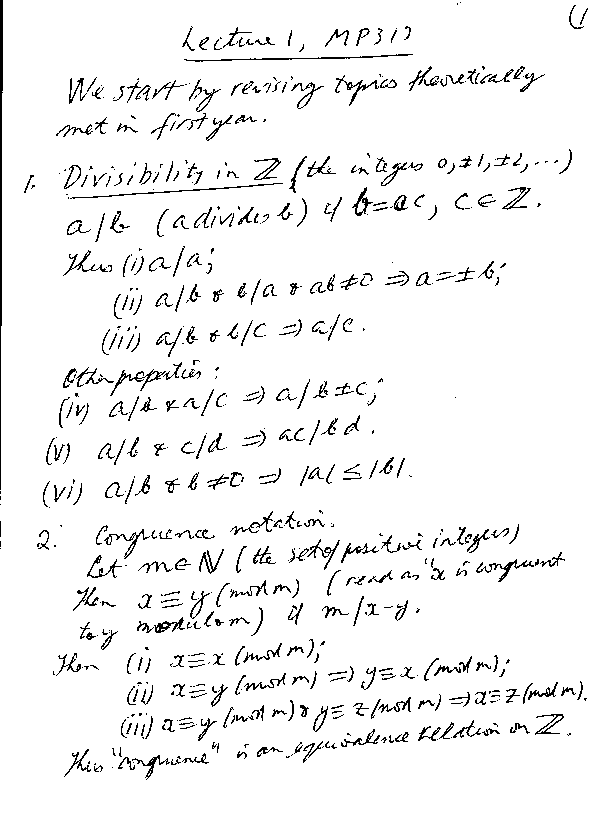 (1
Lecture 1, MP313
We start by revising topics theoretically
met in first year.
1. Divisibility in ℤ (the integers 0, ±1, ±2, ...)
a/b (a divides b) if b=ac, c∈ℤ.
Thus (i) a/a;
(ii) a/b & b/a & ab≠0 ⇒ a=±b;
(iii) a/b & b/c ⇒ a/c.
Other properties:
(iv) a/b & a/c ⇒ a/b±c;
(v) a/b & c/d ⇒ ac/bd.
(vi) a/b & b≠0 ⇒ |a| ≤ |b|.
2. Congruence notation.
Let m∈ℕ (the set of positive integers)
Then x≡y (mod m) (read as "x is congruent
to y modulo m) if m/x-y.
Then (i) x≡x (mod m);
(ii) x≡y (mod m) ⇒ y≡x (mod m);
(iii) x≡y (mod m) & y≡z (mod m) ⇒ x≡z (mod m).
Thus "congruence" is an equivalence relation on ℤ.